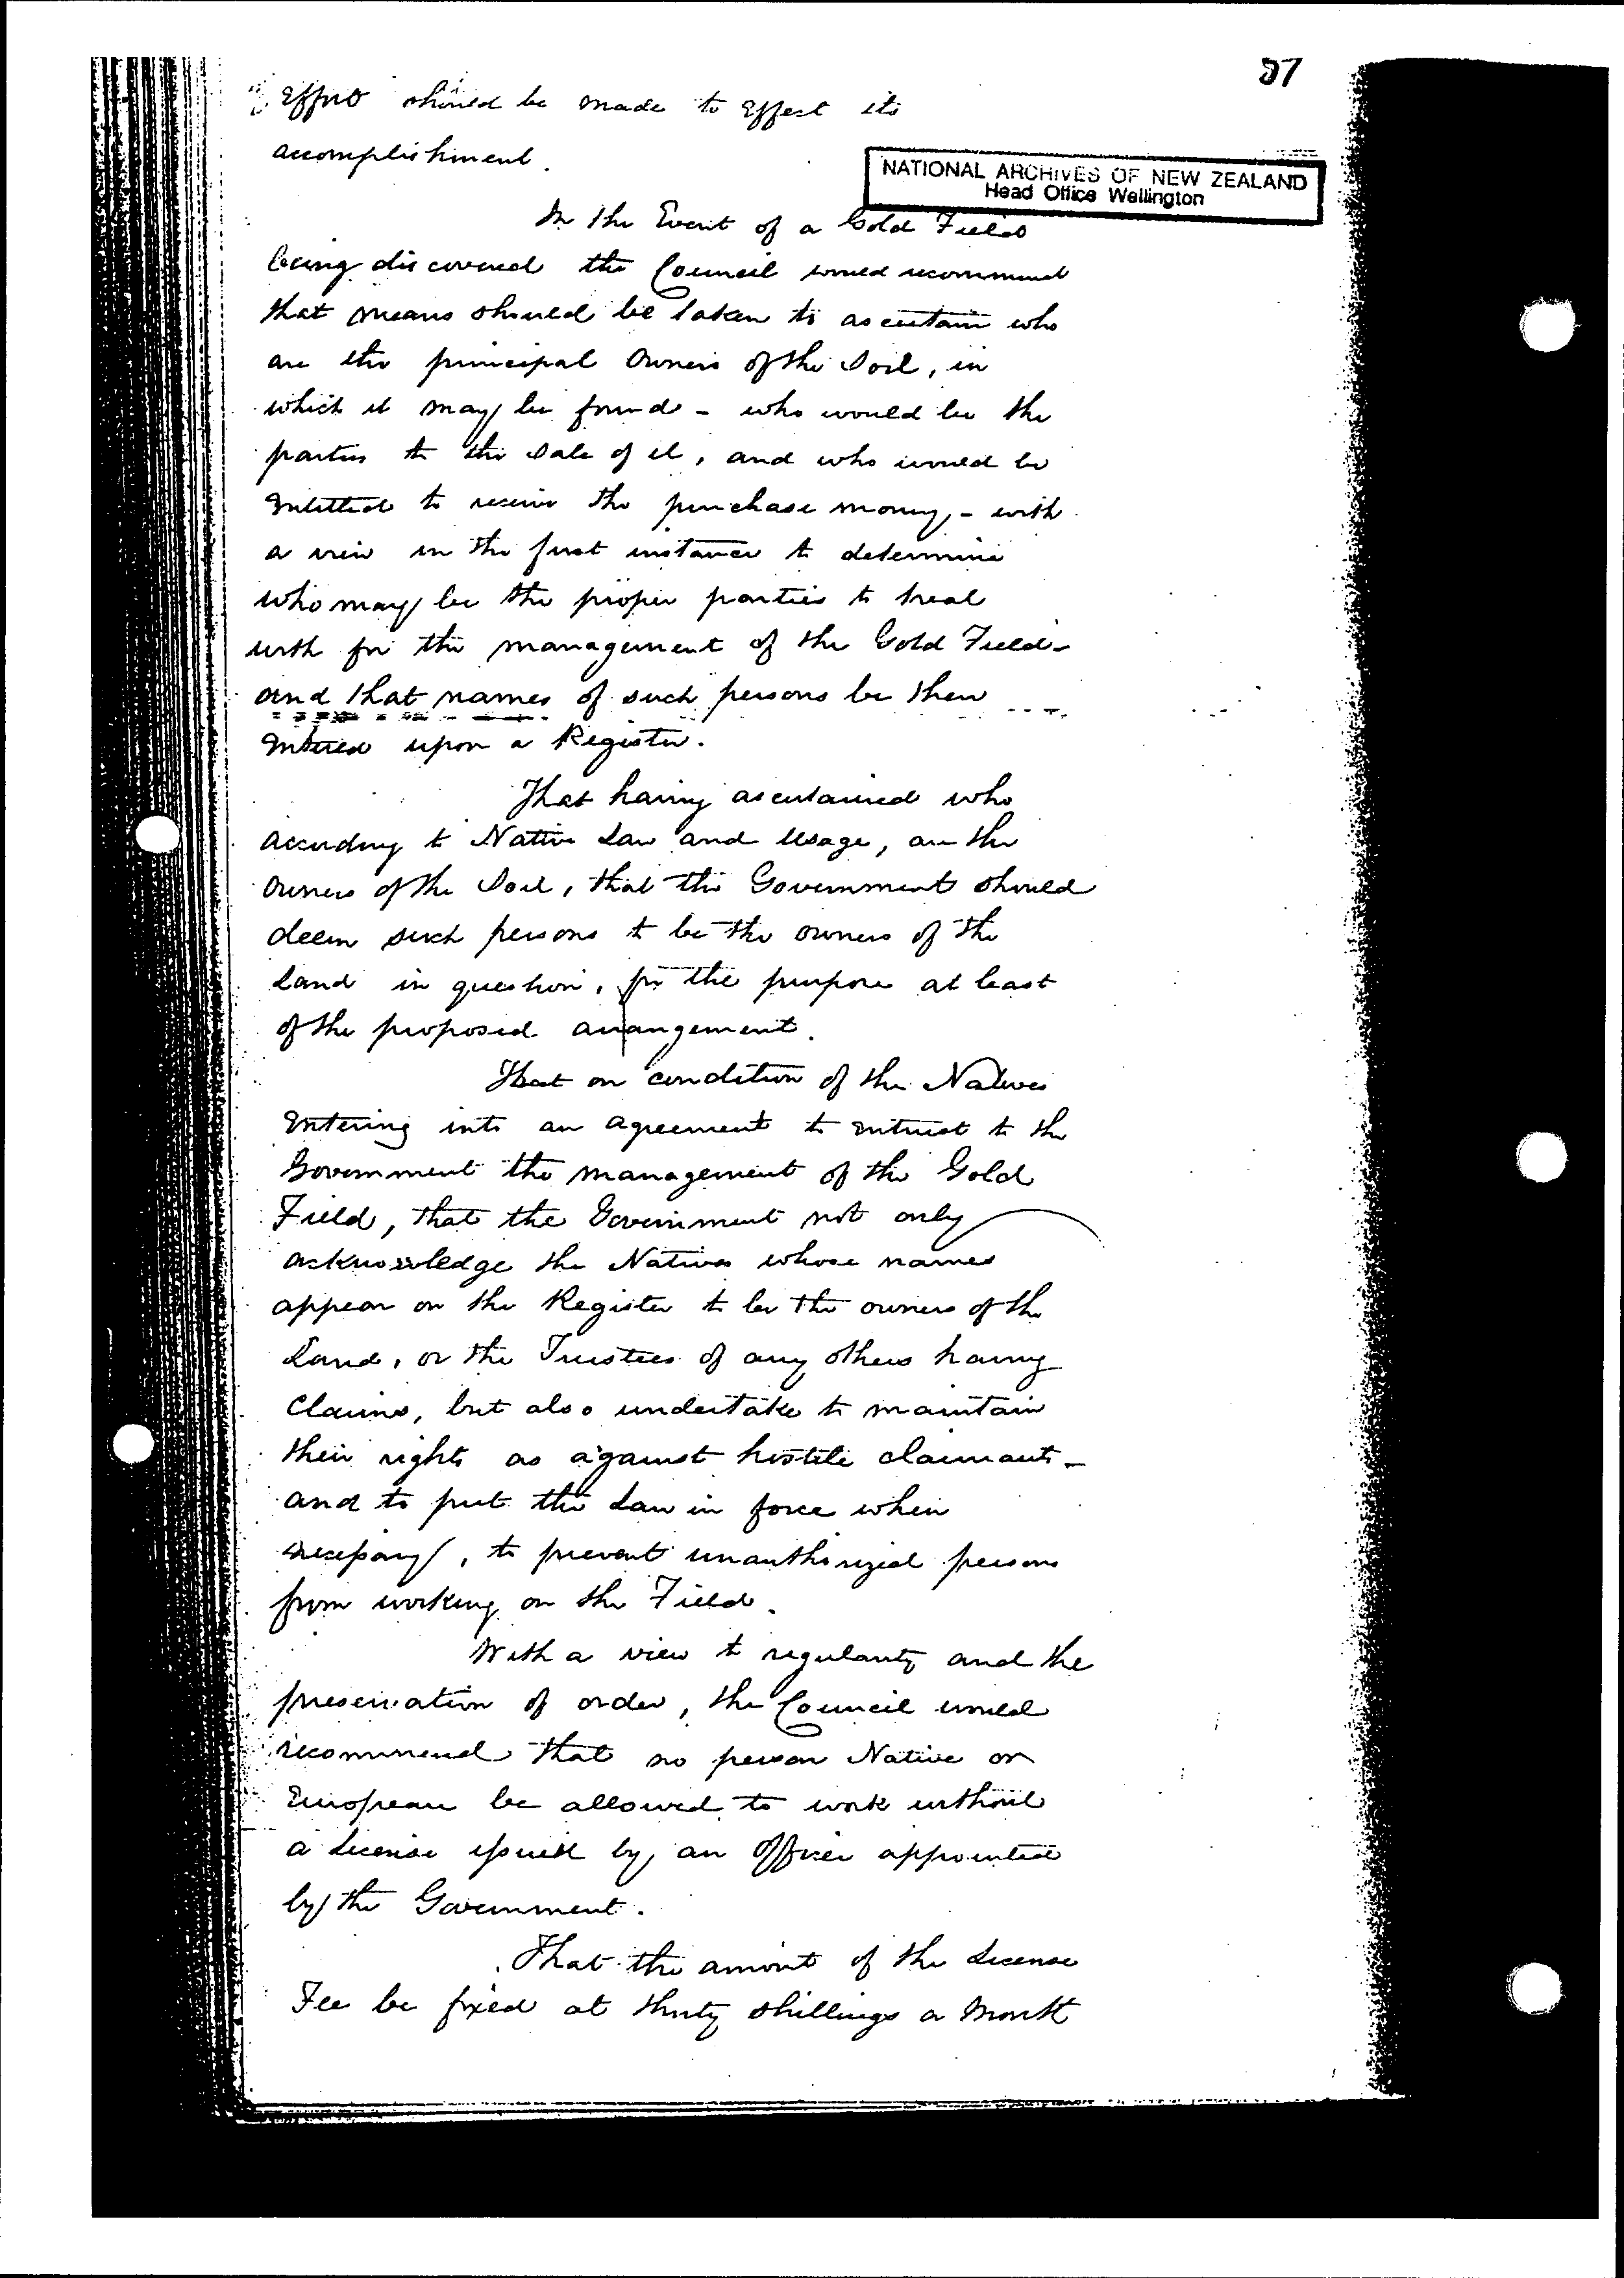 57
Effort should be made to Effect its
accomplishment.
NATIONAL ARCHIVES OF NEW ZEALAND
Head Office Wellington
In the Event of a Gold Field
being discovered the Council would recommend
that means should be taken to ascertain who
are the principal Owners of the Soil, in
which it may be found - who would be the
parties to the Sale of it, and who would be
Entitled to receive the purchase money, - with
a view in the first instance to determine
who may be the proper parties to treat
with for the management of the Gold Field -
and that names of such persons be then
Entered upon a Register.
That having ascertained who
according to Native Law and Usage, are the
Owners of the Soil, that the Government should
deem such persons to be the owners of the
Land in question, for the purpose at least
of the proposed arrangement.
That on condition of the Natives
Entering into an agreement to Entrust to the
Government the management of the Gold
Field, that the Government not only
acknowledge the Natives whose names
appear on the Register to be the owners of the
Land, or the Trustees of any others having
Claims, but also undertake to maintain
their rights as against hostile claimants -
and to put the Law in force when
necessary, to prevent unauthorized persons
from working on the Field.
With a view to regularity and the
preservation of order, the Council would
recommend that no person Native or
European be allowed to work without
a License issued by an Officer appointed
by the Government.
That the amount of the License
Fee be fixed at thirty shillings a Month